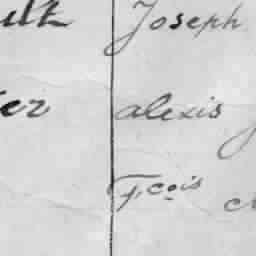 ult Joseph
er alexis
Fcois